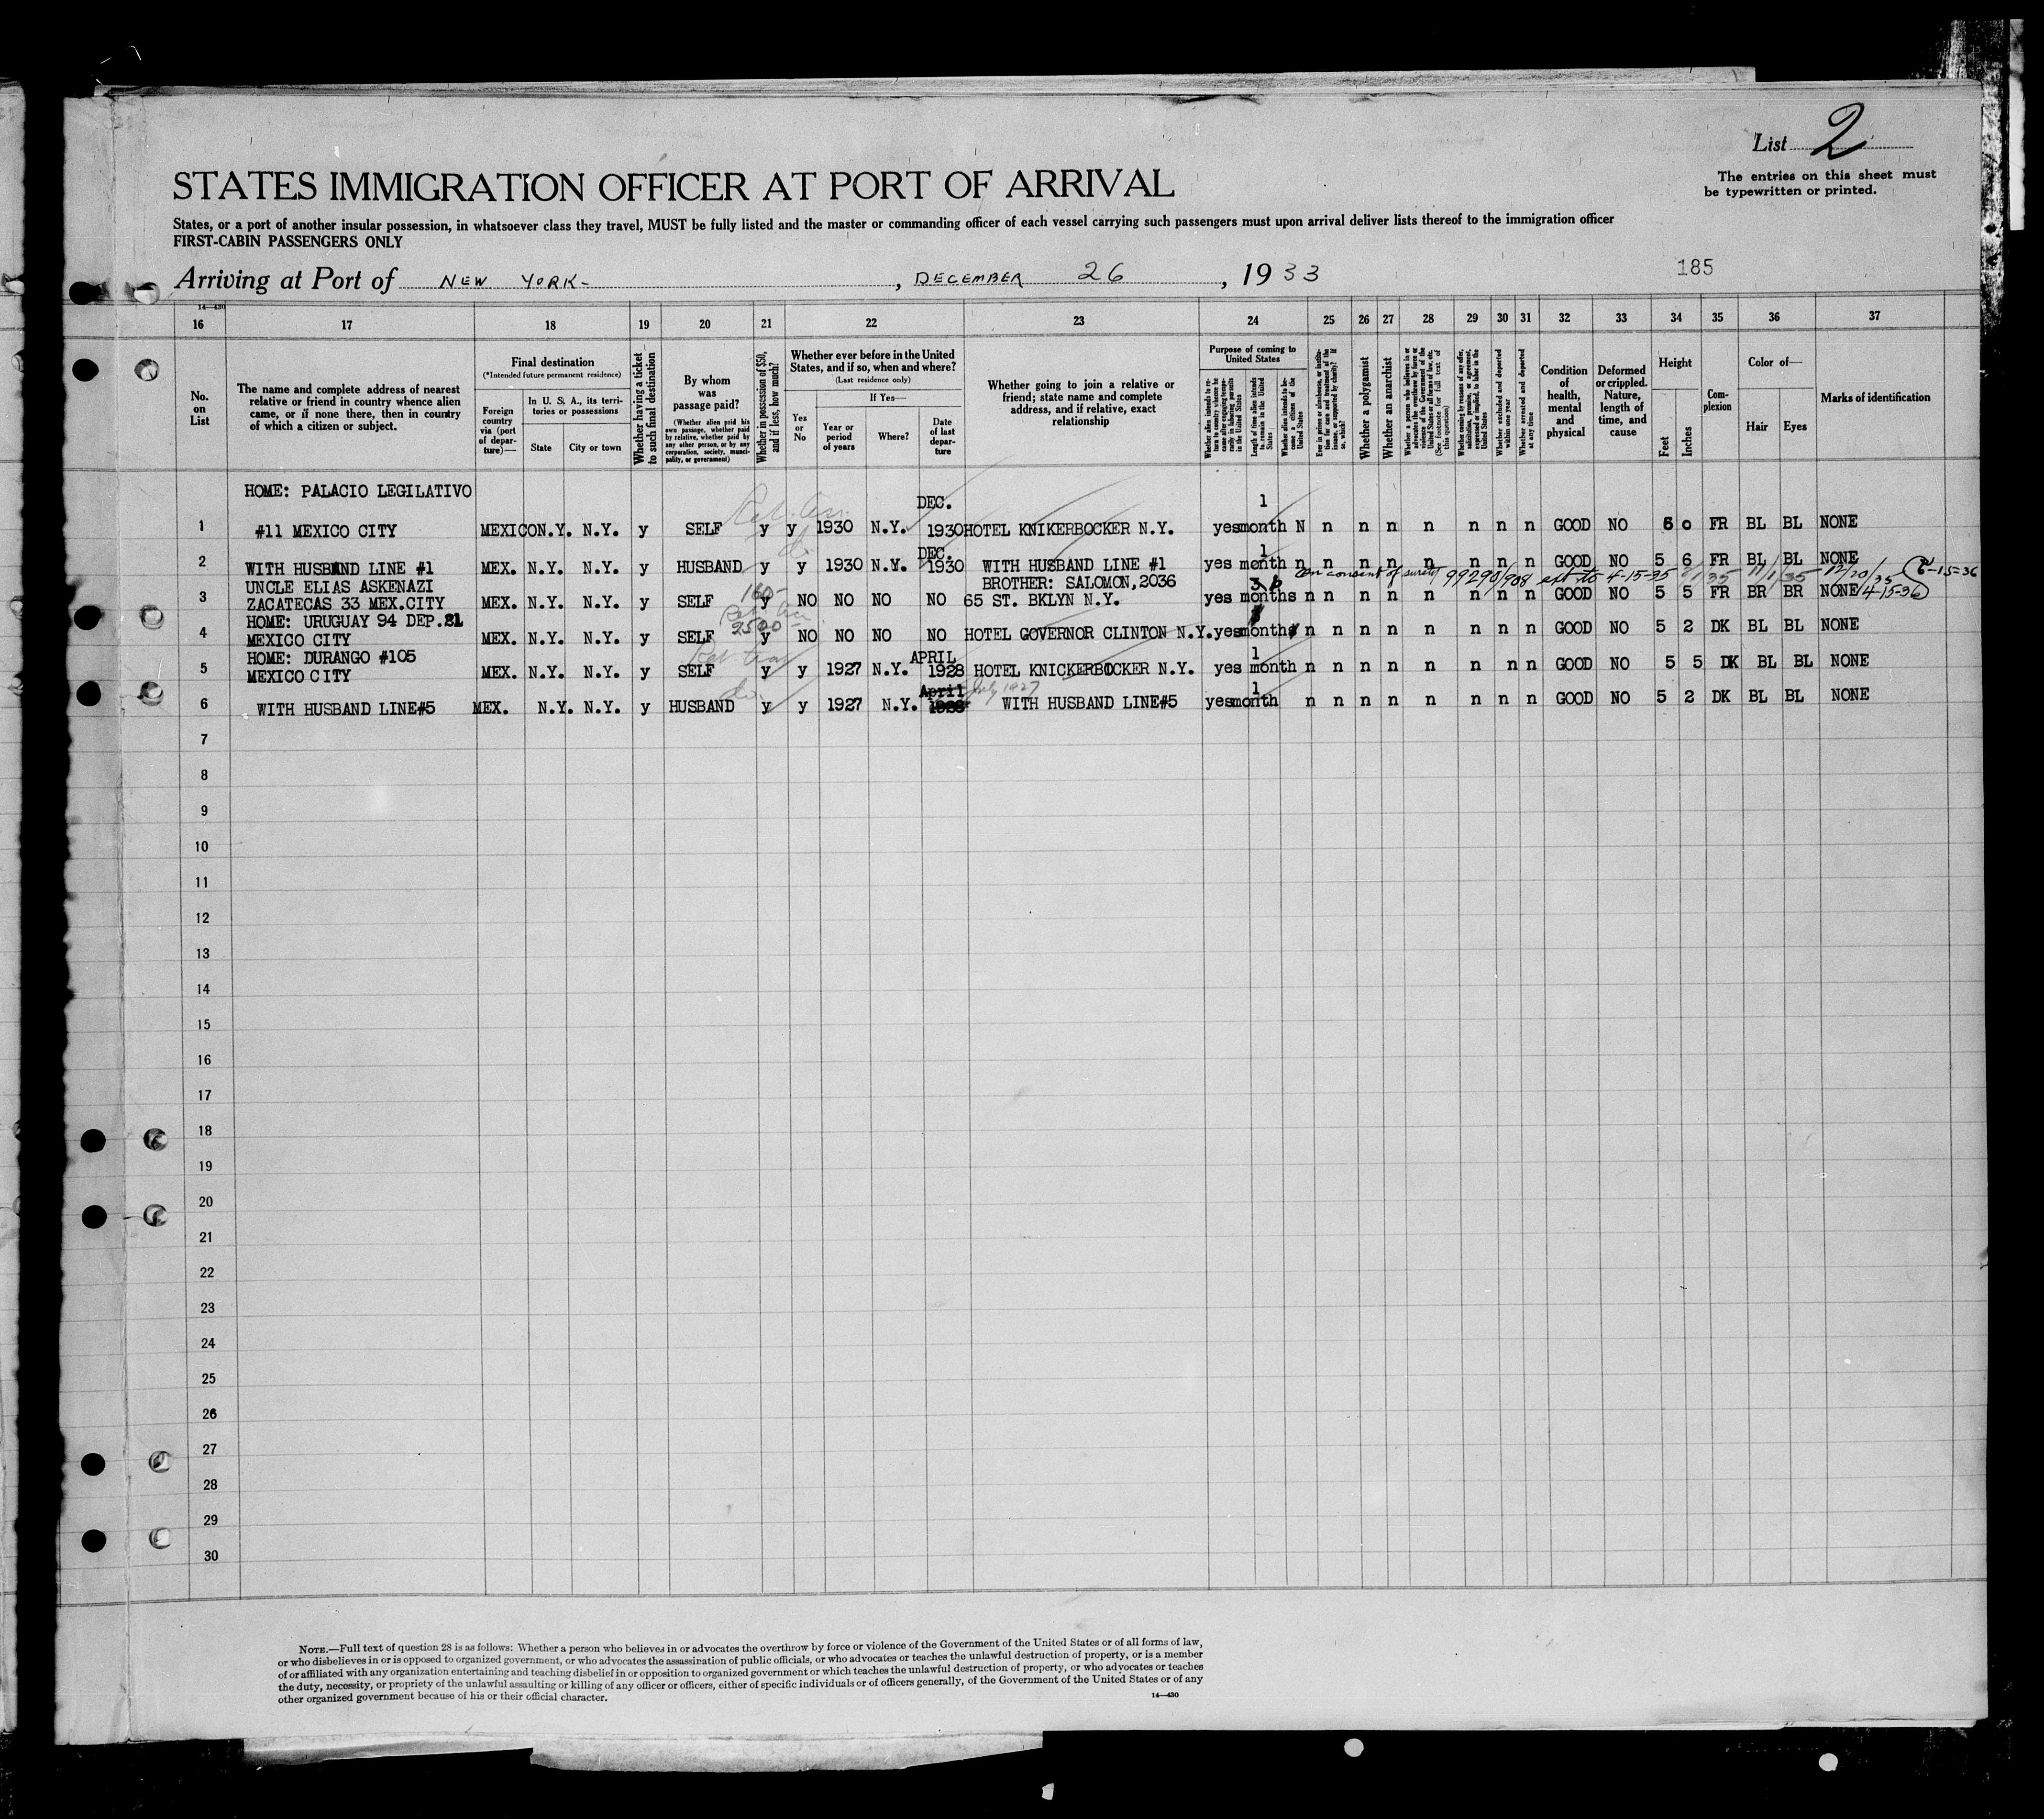 List 2
The entries on this sheet must
be typewritten or printed.
STATES IMMIGRATION OFFICER AT PORT OF ARRIVAL
States, or a port of another insular possession, in whatsoever class they travel, MUST be fully listed and the master or commanding officer of each vessel carrying such passengers must upon arrival deliver lists thereof to the immigration officer
FIRST-CABIN PASSENGERS ONLY
Arriving at Port of NEW YORK- , DECEMBER 26 , 1933
185
14—430
16 17 18 19 20 21 22 23 24 25 26 27 28 29 30 31 32 33 34 35 36 37
No.
on
List
The name and complete address of nearest
relative or friend in country whence alien
came, or if none there, then in country
of which a citizen or subject.
Final destination
(*Intended future permanent residence)
Foreign
country
via (port
of depar-
ture)—
In U. S. A., its terri-
tories or possessions
State
City or town
Whether having a ticket
to such final destination
By whom
was
passage paid?
(Whether alien paid his
own passage, whether paid
by relative, whether paid by
any other person, or by any
corporation, society, munci-
pality, or government)
Whether in possession of $50,
and if less, how much?
Whether ever before in the United
States, and if so, when and where?
(Last residence only)
Yes
or
No
If Yes—
Year or
period
of years
Where?
Date
of last
depar-
ture
Whether going to join a relative or
friend; state name and complete
address, and if relative, exact
relationship
Purpose of coming to
United States
Length of time alien intends
to remain in the United
States
Whether alien intends to be-
come a citizen of the
United States
Whether a polygamist
Whether an anarchist
Whether excluded and deported
within one year
Whether arrested and deported
at any time
Condition
of
health,
mental
and
physical
Deformed
or crippled.
Nature,
length of
time, and
cause
Height
Feet
Inches
Com-
plexion
Color of—
Hair
Eyes
Marks of identification
HOME: PALACIO LEGILATIVO
DEC. 1
1 #11 MEXICO CITY MEXICO N.Y. N.Y. y SELF y y 1930 N.Y. 1930 HOTEL KNIKERBOCKER N.Y. yes month N n n n n n n n GOOD NO 6 0 FR BL BL NONE
DEC. 1
2 WITH HUSBAND LINE #1 MEX. N.Y. N.Y. y HUSBAND y y 1930 N.Y. 1930 WITH HUSBAND LINE #1 yes month n n n n n n n n GOOD NO 5 6 FR BL BL NONE
on consent of surety 99290/908 ext to 4-15-35 9/1/35 11/1/35 12/20/35 4-15-36
UNCLE ELIAS ASKENAZI 160- BROTHER: SALOMON, 2036 3
3 ZACATECAS 33 MEX.CITY MEX. N.Y. N.Y. y SELF y NO NO NO NO 65 ST. BKLYN N.Y. yes months n n n n n n n n GOOD NO 5 5 FR BR BR NONE
HOME: URUGUAY 94 DEP.21 2500-
4 MEXICO CITY MEX. N.Y. N.Y. y SELF y NO NO NO NO HOTEL GOVERNOR CLINTON N.Y. yes month n n n n n n n GOOD NO 5 2 DK BL BL NONE
HOME: DURANGO #105 APRIL 1
5 MEXICO CITY MEX. N.Y. N.Y. y SELF y y 1927 N.Y. 1928 HOTEL KNICKERBOCKER N.Y. yes month n n n n n n n n GOOD NO 5 5 DK BL BL NONE
April July 1927 1
6 WITH HUSBAND LINE#5 MEX. N.Y. N.Y. y HUSBAND y y 1927 N.Y. 1928 WITH HUSBAND LINE#5 yes month n n n n n n n n GOOD NO 5 2 DK BL BL NONE
7
8
9
10
11
12
13
14
15
16
17
18
19
20
21
22
23
24
25
26
27
28
29
30
NOTE.—Full text of question 28 is as follows: Whether a person who believes in or advocates the overthrow by force or violence of the Government of the United States or of all forms of law,
or who disbelieves in or is opposed to organized government, or who advocates the assassination of public officials, or who advocates or teaches the unlawful destruction of property, or is a member
of or affiliated with any organization entertaining and teaching disbelief in or opposition to organized government or which teaches the unlawful destruction of property, or who advocates or teaches
the duty, necessity, or propriety of the unlawful assaulting or killing of any officer or officers, either of specific individuals or of officers generally, of the Government of the United States or of any
other organized government because of his or their official character.
14—430